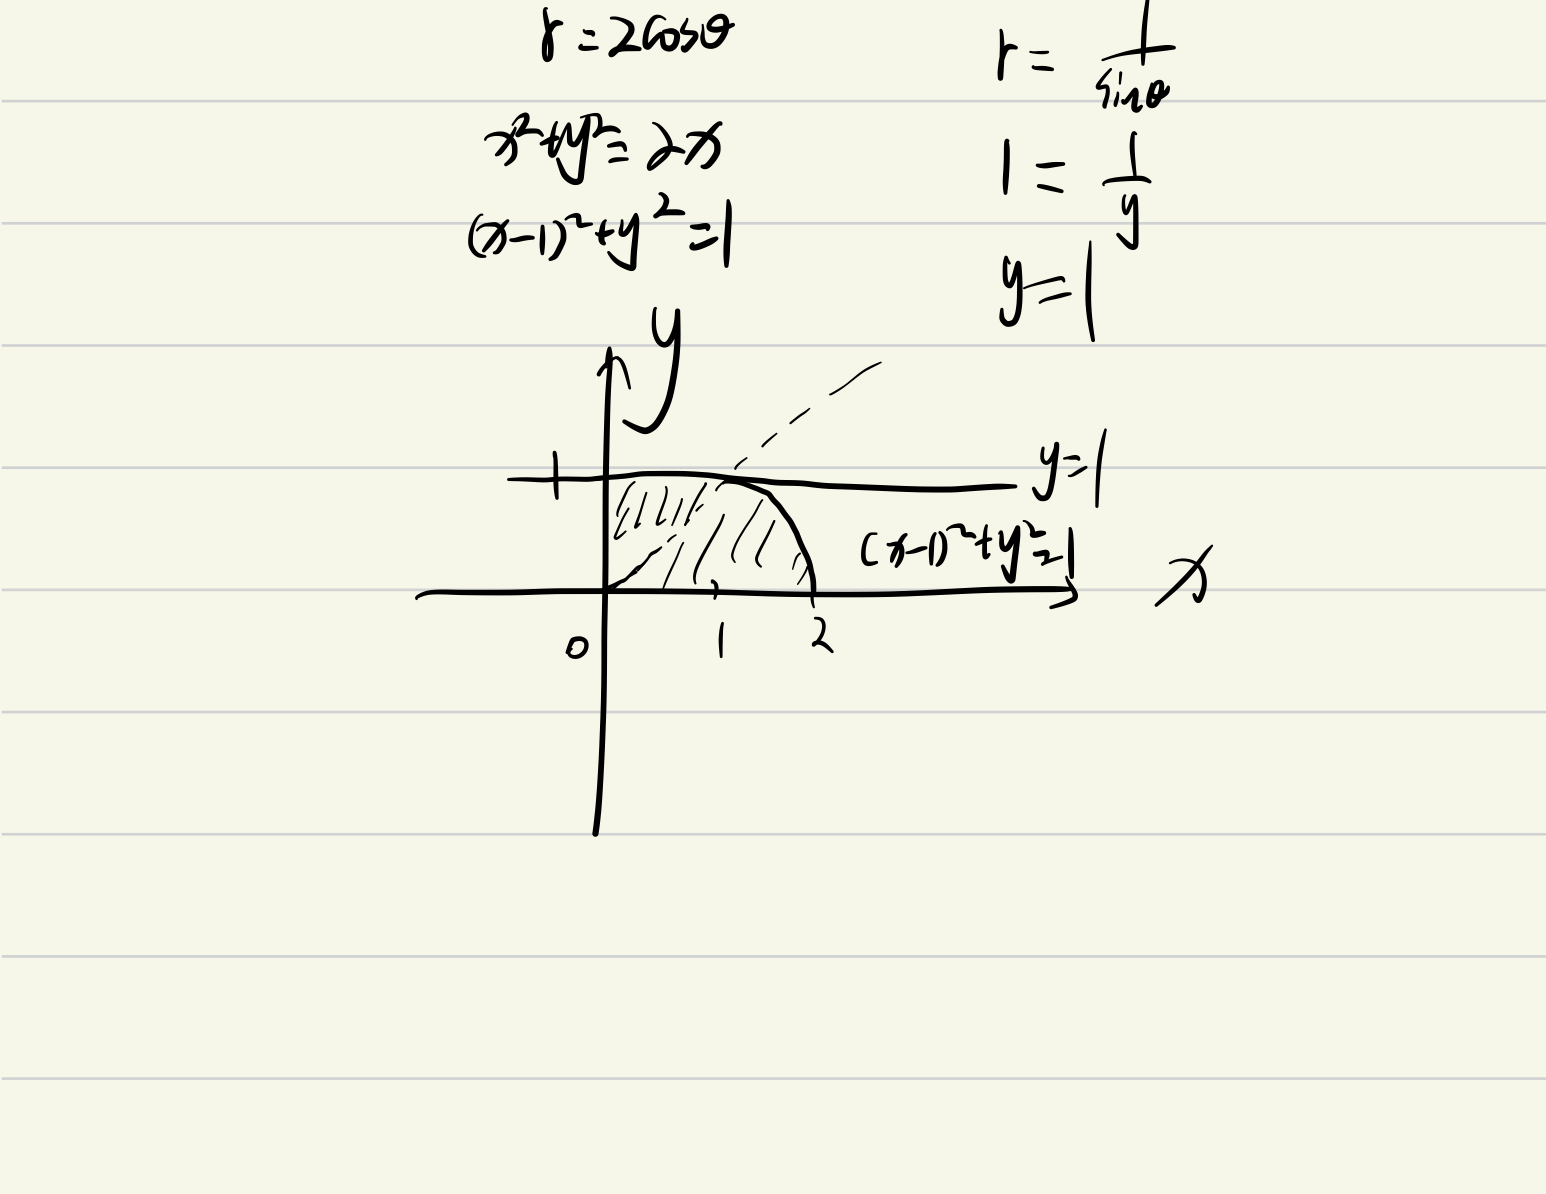 r = 2cosθ
x² + y² = 2x
(x-1)² + y² = 1
r = 1/sinθ
1 = 1/y
y = 1
y
1
y = 1
(x-1)² + y² = 1
x
0 1 2